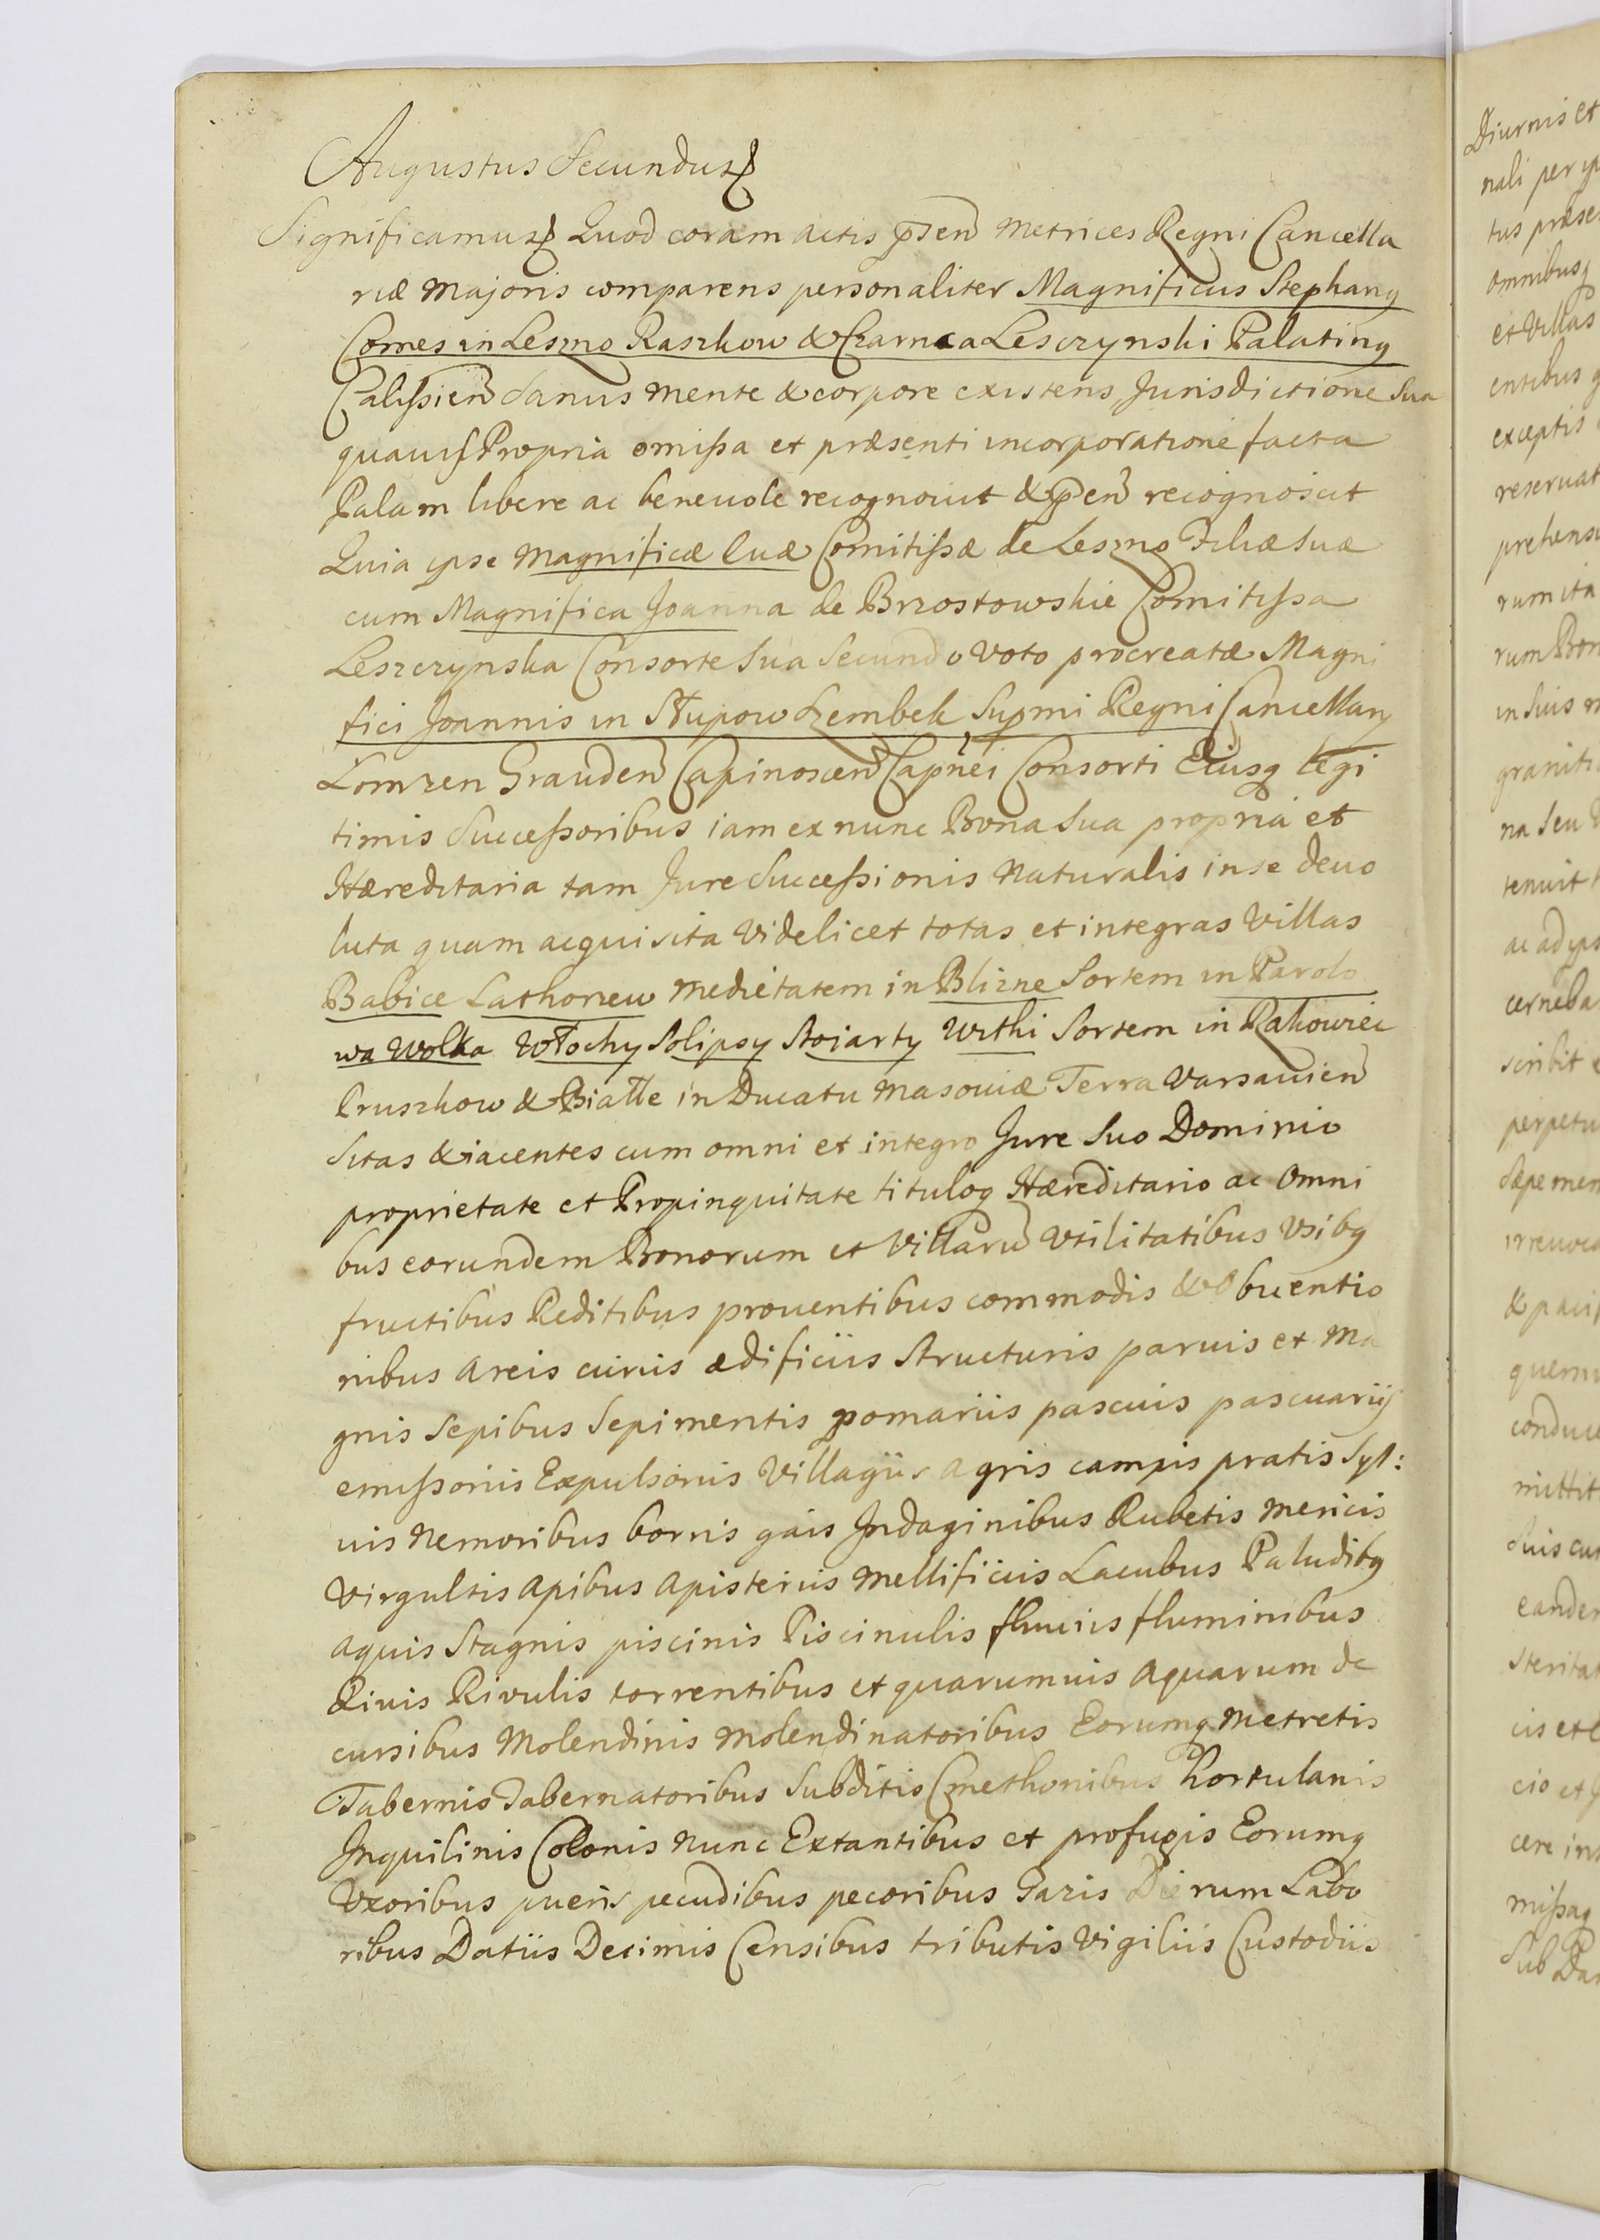 Augustus Secundus
Significamus Quod coram actis pñsen Metrices Regni Cancella
riæ Majoris comparens personaliter Magnificus Stephang
Comes in Leszno Raszkow & Czarnca Lesczynski Palating
Calissien Sanus mente & corpore existens Jurisdictione Sua
quavis Propria omissa et præsenti incorporatione facta
Palam libere ac benevole recognovit & pñsen recognoscit
Quia ipse Magnificæ Evæ Comitissæ de Leszno Filiæ Suæ
cum Magnifica Joanna de Brzostowskie Comitissa
Leszczynska Consorte Sua Secundo voto procreatæ Magni
fici Joannis in Słupow Szembek Supmi Regni Cancellarÿ
Lomzen Grauden Capinoscen Capnei Consorti Eiusq legi
timis Successoribus iam ex nunc Bona Sua propria et
Hæreditaria tam Jure Successionis Naturalis in se devo
luta quam acquisita Videlicet totas et integras Villas
Babice Lathorzew medietatem in Blizne Sortem in Parolo
wa Wolka Włochy Solipsy Stojarty Withi Sortem in Rakowiec
Pruszkow & Białłe in Ducatu Masoviæ Terra Varsavien
Sitas & iacentes cum omni et integro Jure Suo Dominio
proprietate et Propinquitate tituloq Hæreditario ac Omni
bus eorundem Bonorum et Villaru Vtilitatibus Vsibq
fructibus Reditibus proventibus commodis & obventio
nibus Areis curiis ædificiis Structuris parvis et Ma
gnis Sepibus Sepimentis pomariis pascuis pascuariis
emissoriis Expulsoriis Villagiis Agris campis pratis Syl:
vis Nemoribus borris gais Jndaginibus Rubetis Mericis
Virgultis Apibus Apisteriis Mellificiis Lacubus Paludibq
Aquis Stagnis piscinis Piscinulis fluviis fluminibus
Rivis Rivulis torrentibus et quarumvis Aquarum de
cursibus Molendinis Molendinatoribus Eorumq Metretis
Tabernis Tabernatoribus Subditis Cmethonibus hortulanis
Jnquilinis Colonis Nunc Extantibus et profugis Eorumq
Vxoribus pueris pecudibus pecoribus Gazis Dierum Labo
ribus Datiis Decimis Censibus tributis Vigiliis Custodiis
Diurnis et
nali per
tus præse
Omnibusq
et Villas
entibus
exceptis
reservat
prehens
rum ita
rum Bon
in Suis
graniti
na Seu
tenuit
ac ad ips
cerneba
scribit
perpetu
Sæpe men
irrevoca
& paci
quemv
conduc
mittit
Suis cu
eander
Steritat
cis et
cio et
cere in
missaq
Sub Da